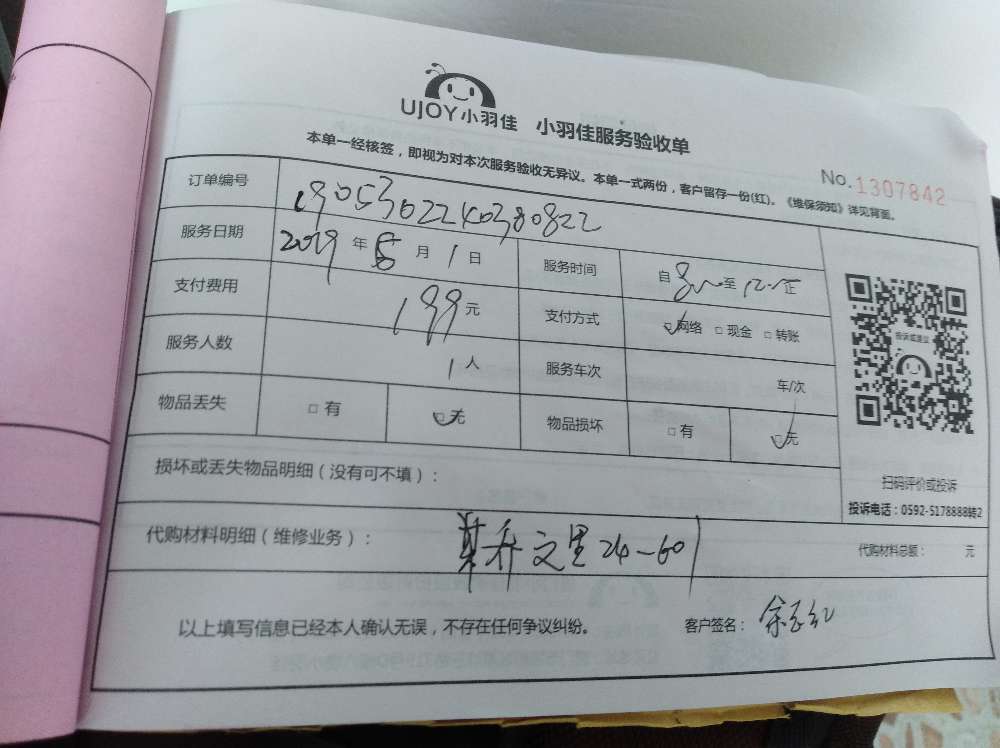 UJOY小羽佳 小羽佳服务验收单
本单一经核签，即视为对本次服务验收无异议。本单一式两份，客户留存一份(红)。《维保须知》详见背面。
No.1307842
订单编号 1905302240380822
服务日期 2019 年 月 1 日 服务时间 自 8 至 12 正
支付费用 199 元 支付方式 □网络 □现金 □转账
服务人数 1 人 服务车次 车/次
物品丢失 □有 □无 物品损坏 □有 □无
投诉或建议
扫码评价或投诉
投诉电话：0592-5178888转2
损坏或丢失物品明细（没有可不填）：
代购材料明细（维修业务）： 乔文里24-601 代购材料总额： 元
以上填写信息已经本人确认无误，不存在任何争议纠纷。 客户签名：